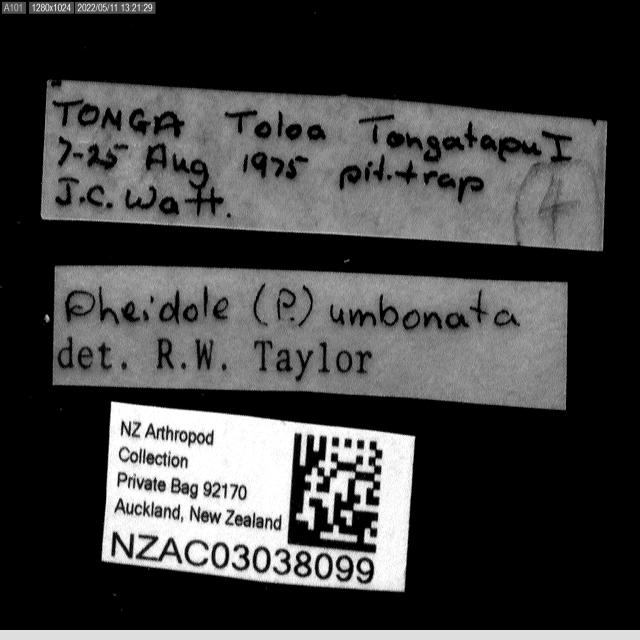 A101 1280x1024 2022/05/11 13:21:29
TONGA Toloa Tongatapu I
7-25 Aug 1975 pit.trap
J.C. Watt.
4
Pheidole (P.) umbonata
det. R.W. Taylor
NZ Arthropod
Collection
Private Bag 92170
Auckland, New Zealand
NZAC03038099